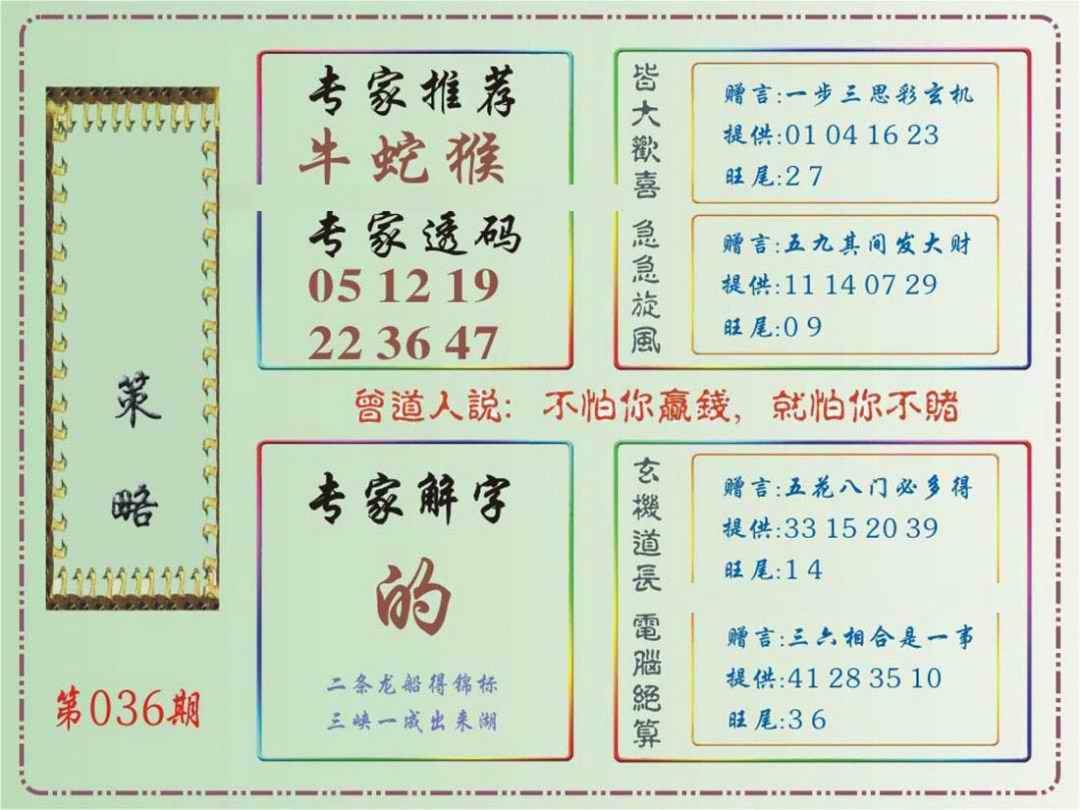 策略
第036期
专家推荐
牛蛇猴
专家透码
05 12 19
22 36 47
皆大歡喜
赠言:一步三思彩玄机
提供:01 04 16 23
旺尾:2 7
急急旋風
赠言:五九其间发大财
提供:11 14 07 29
旺尾:0 9
曾道人説: 不怕你贏錢, 就怕你不賭
专家解字
的
二条龙船得锦标
三峡一成出来湖
玄機道長
赠言:五花八门必多得
提供:33 15 20 39
旺尾:1 4
電腦絕算
赠言:三六相合是一事
提供:41 28 35 10
旺尾:3 6